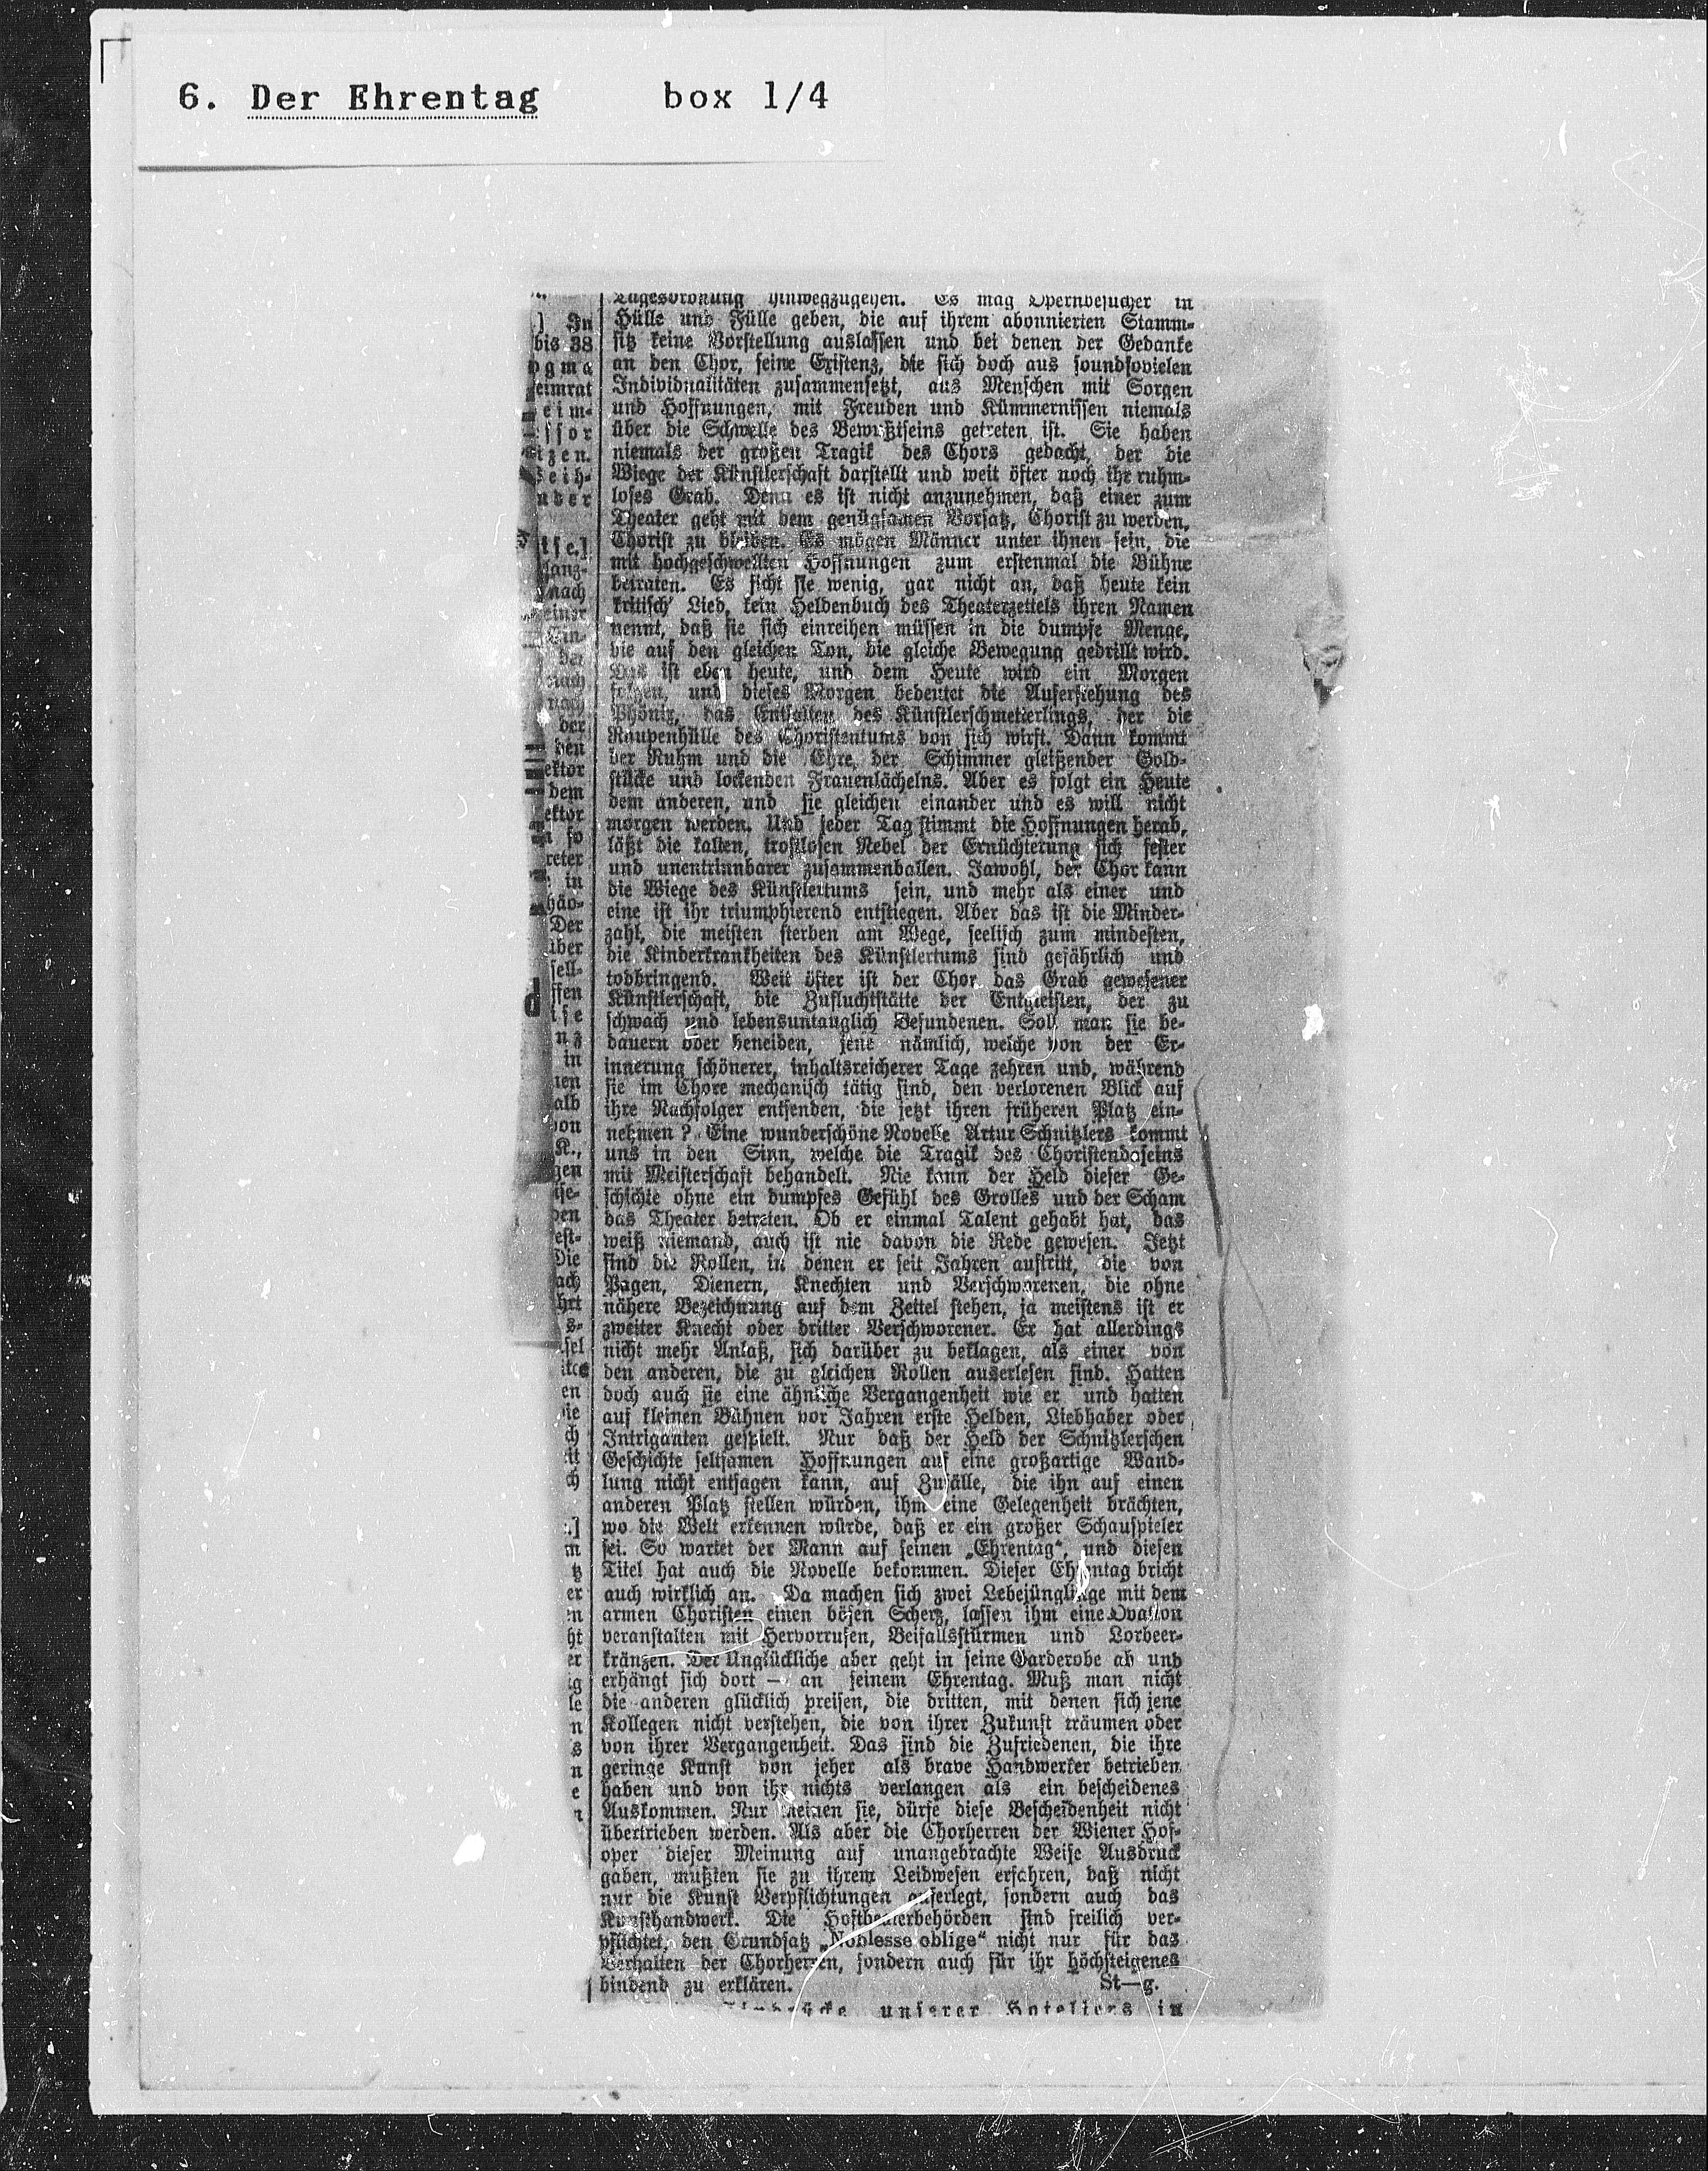 6. Der Ehrentag box 1/4
Tagesordnung hinwegzugehen. Es mag Opernbesucher in
Hülle und Fülle geben, die auf ihrem abonnierten Stamm-
sitz keine Vorstellung auslassen und bei denen der Gedanke
an den Chor, seine Existenz, die sich doch aus soundsovielen
Individualitäten zusammensetzt, aus Menschen mit Sorgen
und Hoffnungen, mit Freuden und Kümmernissen niemals
über die Schwelle des Bewußtseins getreten ist. Sie haben
niemals der großen Tragik des Chors gedacht, der die
Wiege der Künstlerschaft darstellt und weit öfter noch ihr ruhm-
loses Grab. Denn es ist nicht anzunehmen, daß einer zum
Theater geht mit dem genügsamen Vorsatz, Chorist zu werden,
Chorist zu bleiben. Es mögen Männer unter ihnen sein, die
mit hochgeschwellten Hoffnungen zum erstenmal die Bühne
betraten. Es ficht sie wenig, gar nicht an, daß heute kein
kritisch' Lied, kein Heldenbuch des Theaterzettels ihren Namen
nennt, daß sie sich einreihen müssen in die dumpfe Menge,
die auf den gleichen Ton, die gleiche Bewegung gedrillt wird.
Das ist eben heute, und dem Heute wird ein Morgen
folgen, und dieses Morgen bedeutet die Auferstehung des
Phönix, das Entfalten des Künstlerschmetterlings, der die
Raupenhülle des Choristentums von sich wirft. Dann kommt
der Ruhm und die Ehre, der Schimmer gleißender Gold-
stücke und lockenden Frauenlächelns. Aber es folgt ein Heute
dem anderen, und sie gleichen einander und es will nicht
morgen werden. Und jeder Tag stimmt die Hoffnungen herab,
läßt die kalten, trostlosen Nebel der Ernüchterung sich fester
und unentrinnbarer zusammenballen. Jawohl, der Chor kann
die Wiege des Künstlertums sein, und mehr als einer und
eine ist ihr triumphierend entstiegen. Aber das ist die Minder-
zahl, die meisten sterben am Wege, seelisch zum mindesten,
die Kinderkrankheiten des Künstlertums sind gefährlich und
todbringend. Weit öfter ist der Chor das Grab gewesener
Künstlerschaft, die Zufluchtstätte der Entgleisten, der zu
schwach und lebensuntauglich Befundenen. Soll man sie be-
dauern oder beneiden, jene nämlich, welche von der Er-
innerung schönerer, inhaltsreicherer Tage zehren und, während
sie im Chore mechanisch tätig sind, den verlorenen Blick auf
ihre Nachfolger entsenden, die jetzt ihren früheren Platz ein-
nehmen? Eine wunderschöne Novelle Artur Schnitzlers kommt
uns in den Sinn, welche die Tragik des Choristendaseins
mit Meisterschaft behandelt. Nie kann der Held dieser Ge-
schichte ohne ein dumpfes Gefühl des Grolles und der Scham
das Theater betreten. Ob er einmal Talent gehabt hat, das
weiß niemand, auch ist nie davon die Rede gewesen. Jetzt
sind die Rollen, in denen er seit Jahren auftritt, die von
Pagen, Dienern, Knechten und Verschworenen, die ohne
nähere Bezeichnung auf dem Zettel stehen, ja meistens ist er
zweiter Knecht oder dritter Verschworener. Er hat allerdings
nicht mehr Anlaß, sich darüber zu beklagen, als einer von
den anderen, die zu gleichen Rollen auserlesen sind. Hatten
doch auch sie eine ähnliche Vergangenheit wie er und hatten
auf kleinen Bühnen vor Jahren erste Helden, Liebhaber oder
Intriganten gespielt. Nur daß der Held der Schnitzlerschen
Geschichte seltsamen Hoffnungen auf eine großartige Wand-
lung nicht entsagen kann, auf Zufälle, die ihn auf einen
anderen Platz stellen würden, ihm eine Gelegenheit brächten,
wo die Welt erkennen würde, daß er ein großer Schauspieler
sei. So wartet der Mann auf seinen „Ehrentag“, und diesen
Titel hat auch die Novelle bekommen. Dieser Ehrentag bricht
auch wirklich an. Da machen sich zwei Lebejünglinge mit dem
armen Choristen einen bösen Scherz, lassen ihm eine Ovation
veranstalten mit Hervorrufen, Beifallsstürmen und Lorbeer-
kränzen. Der Unglückliche aber geht in seine Garderobe ab und
erhängt sich dort — an seinem Ehrentag. Muß man nicht
die anderen glücklich preisen, die dritten, mit denen sich jene
Kollegen nicht verstehen, die von ihrer Zukunft träumen oder
von ihrer Vergangenheit. Das sind die Zufriedenen, die ihre
geringe Kunst von jeher als brave Handwerker betrieben
haben und von ihr nichts verlangen als ein bescheidenes
Auskommen. Nur meinen sie, dürfe diese Bescheidenheit nicht
übertrieben werden. Als aber die Chorherren der Wiener Hof-
oper dieser Meinung auf unangebrachte Weise Ausdruck
gaben, mußten sie zu ihrem Leidwesen erfahren, daß nicht
nur die Kunst Verpflichtungen auferlegt, sondern auch das
Kunsthandwerk. Die Hoftheaterbehörden sind freilich ver-
pflichtet, den Grundsatz „Noblesse oblige“ nicht nur für das
Verhalten der Chorherren, sondern auch für ihr höchsteigenes
bindend zu erklären. St—g.
unserer Hoteliers in